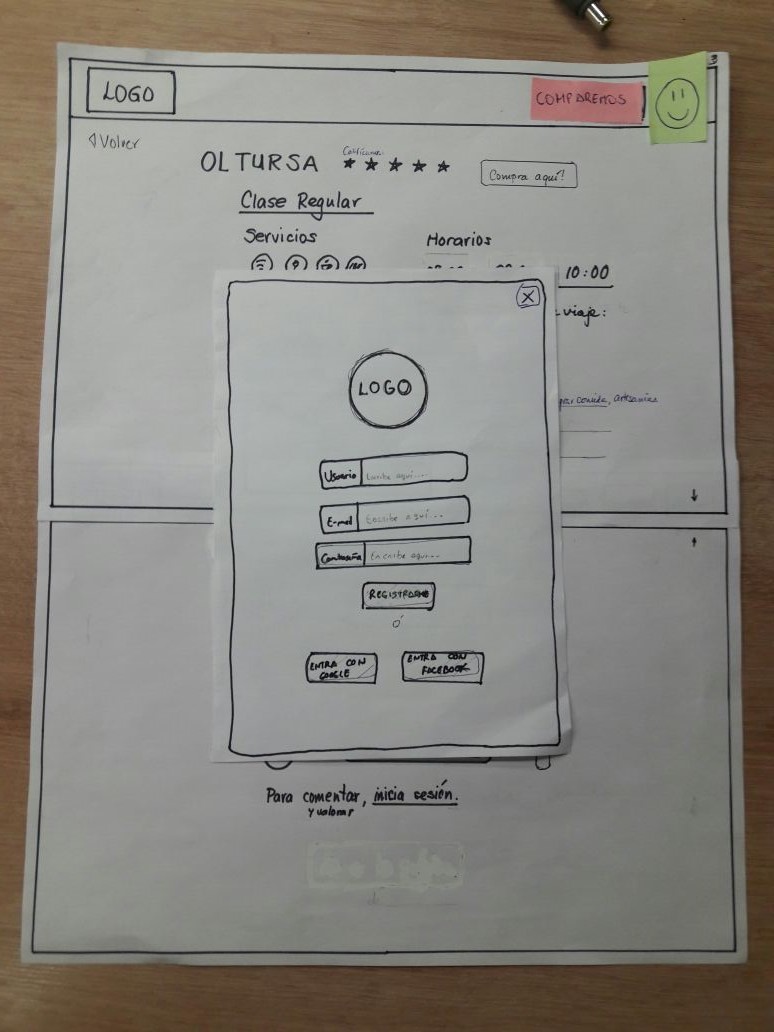 LOGO
COMPAREMOS
Volver
OLTURSA
Calificanos:
Compra aquí!
Clase Regular
Servicios
Horarios
10:00
viaje:
comida, artesanías
X
LOGO
Usuario
Escribe aquí...
E-mail
Escribe aquí...
Contraseña
Escribe aquí...
REGISTRARME
Ó
ENTRA CON
GOOGLE
ENTRA CON
FACEBOOK
Para comentar, inicia sesión.
y valorar